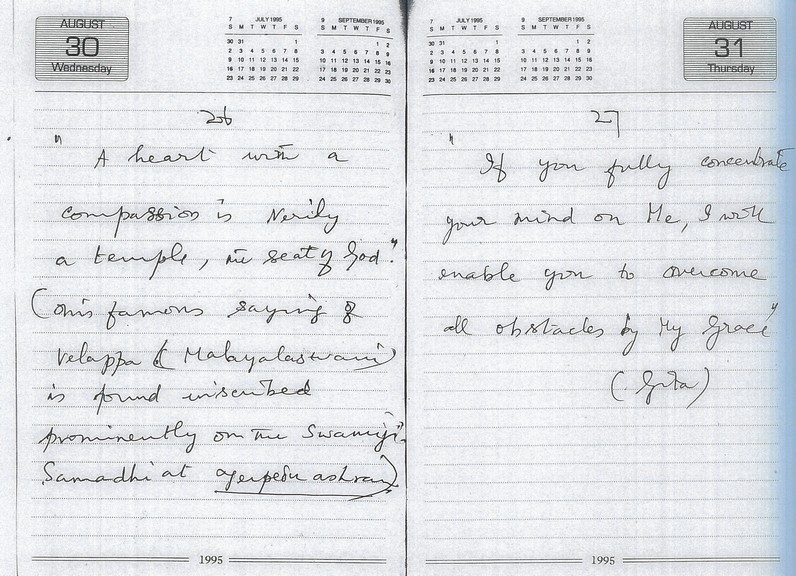 AUGUST
30
Wednesday
7 JULY 1995
S M T W T F S
30 31 1
2 3 4 5 6 7 8
9 10 11 12 13 14 15
16 17 18 19 20 21 22
23 24 25 26 27 28 29
9 SEPTEMBER 1995
S M T W T F S
1 2
3 4 5 6 7 8 9
10 11 12 13 14 15 16
17 18 19 20 21 22 23
24 25 26 27 28 29 30
26
" A heart with a
compassion is Verily
a temple, the seat of God."
(This famous saying of
Velappa (Malayalaswami)
is found inscribed
prominently on the Swamiji's
Samadhi at yerpedu ashram)
1995
7 JULY 1995
S M T W T F S
30 31 1
2 3 4 5 6 7 8
9 10 11 12 13 14 15
16 17 18 19 20 21 22
23 24 25 26 27 28 29
9 SEPTEMBER 1995
S M T W T F S
1 2
3 4 5 6 7 8 9
10 11 12 13 14 15 16
17 18 19 20 21 22 23
24 25 26 27 28 29 30
AUGUST
31
Thursday
27
" If you fully concentrate
your mind on Me, I will
enable you to overcome
all obstacles by My Grace"
(Gita)
1995